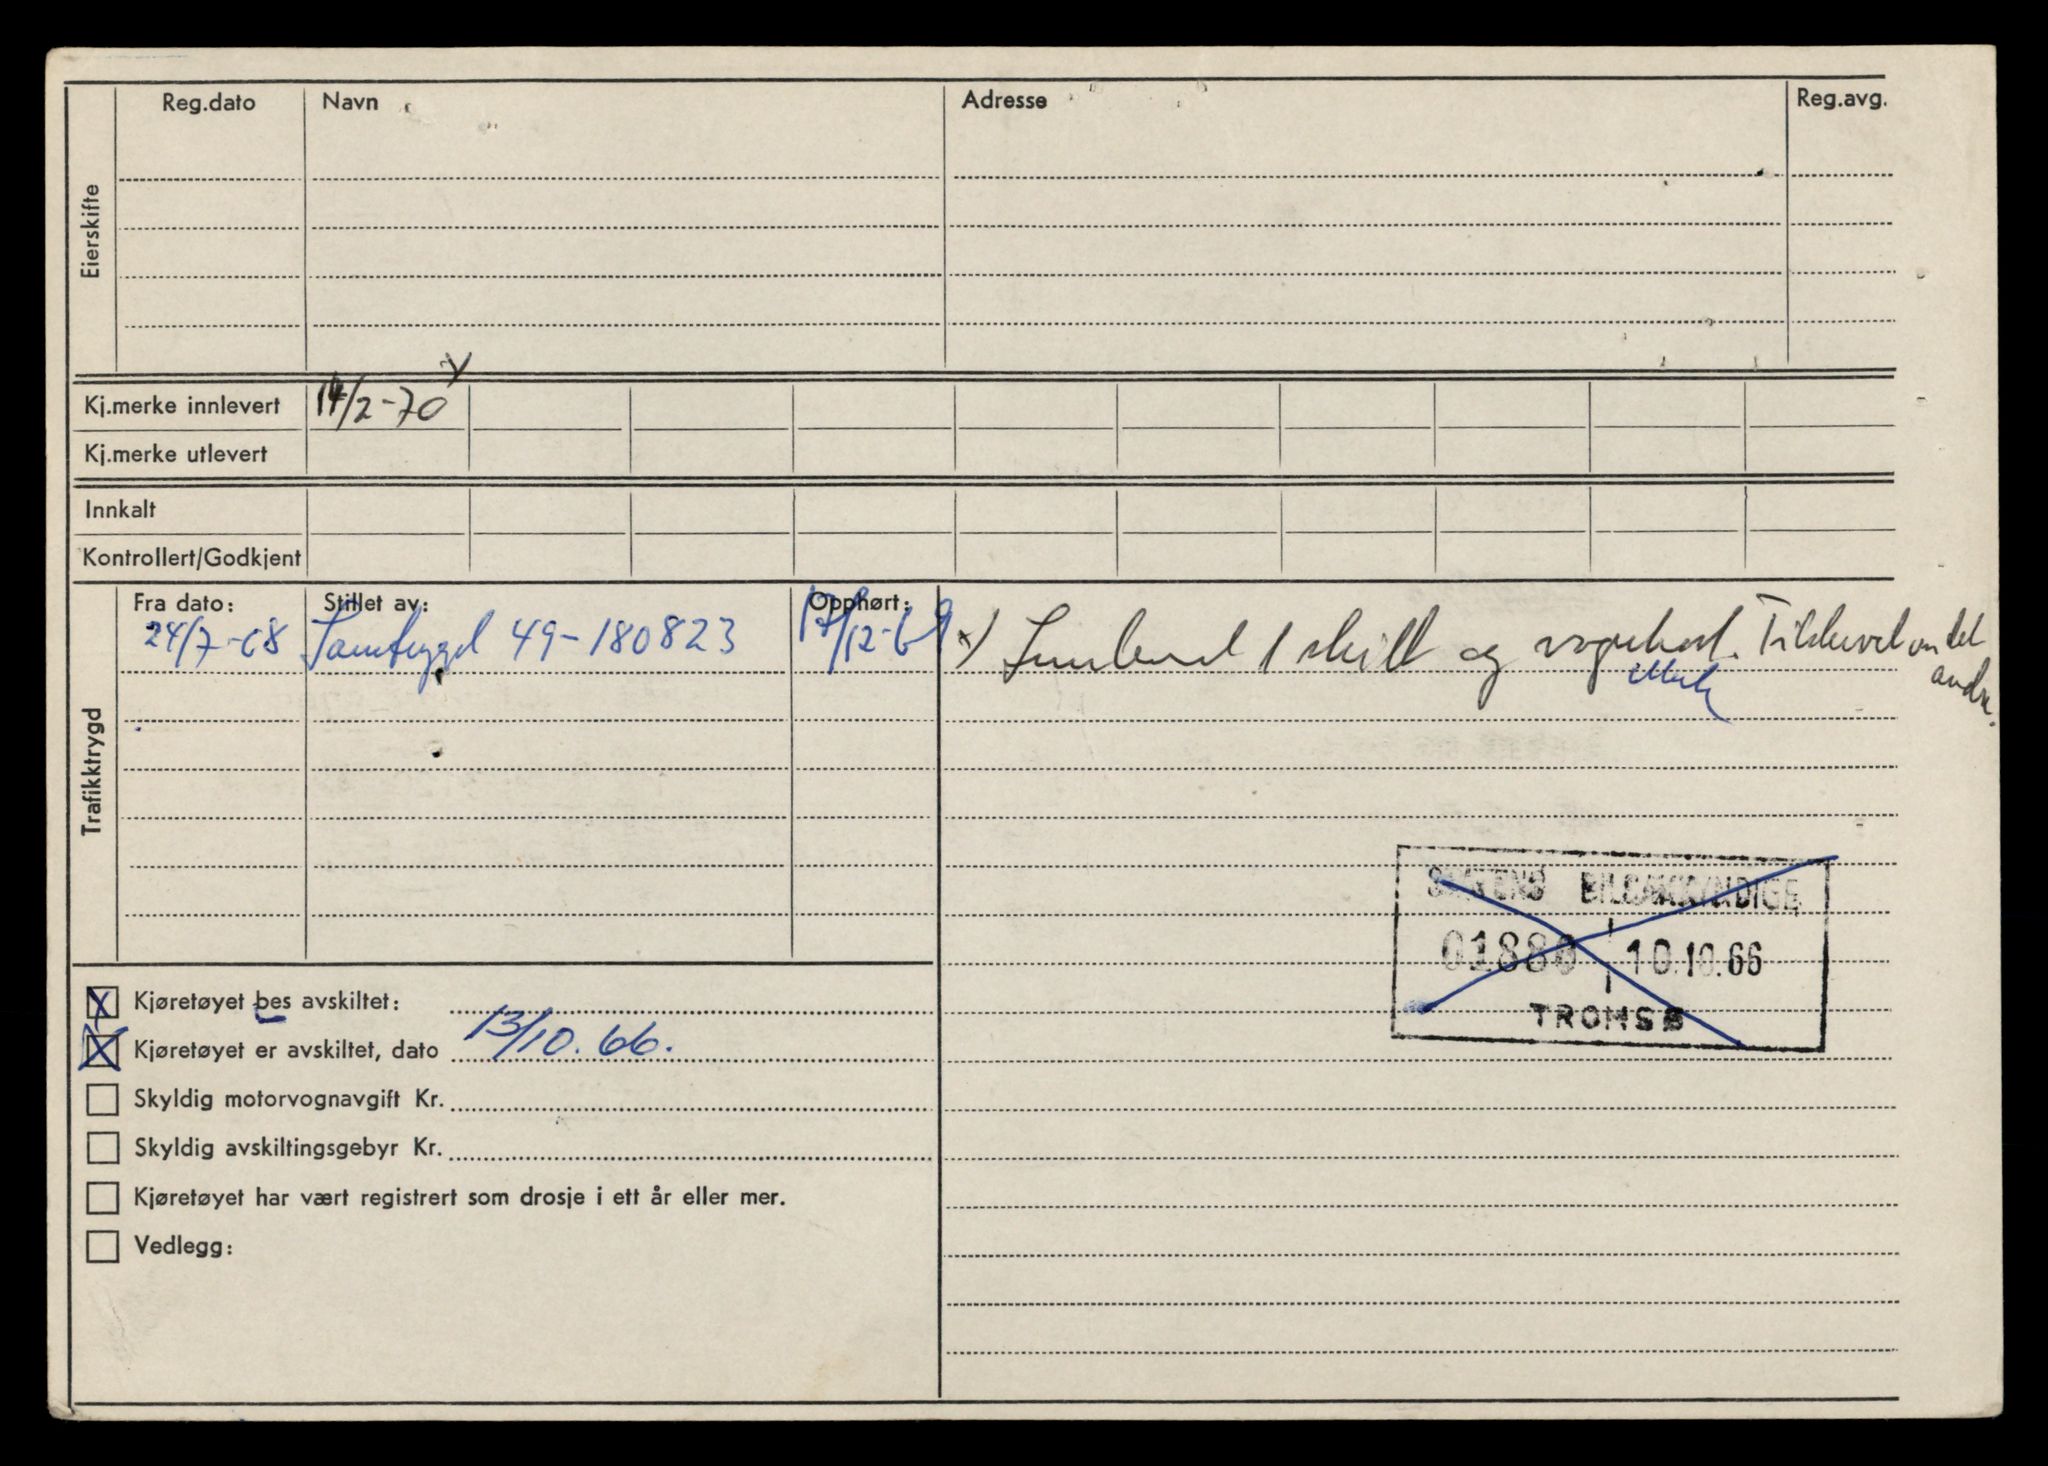 Reg.dato Navn Adresse Reg.avg.
Eierskifte
Kj.merke innlevert 14/2-70 x)
Kj.merke utlevert
Innkalt
Kontrollert/Godkjent
Trafikktrygd
Fra dato: Stillet av: Opphørt:
24/7-68 Samtrygd 49-180823 17/12-69
x) Innlevert 1 skilt og vognkort. Tilskrevet om det
andre.
STATENS BILSAKKYNDIGE
01880 10.10.66
TROMSØ
X Kjøretøyet bes avskiltet:
X Kjøretøyet er avskiltet, dato 13/10.66.
Skyldig motorvognavgift Kr.
Skyldig avskiltingsgebyr Kr.
Kjøretøyet har vært registrert som drosje i ett år eller mer.
Vedlegg: